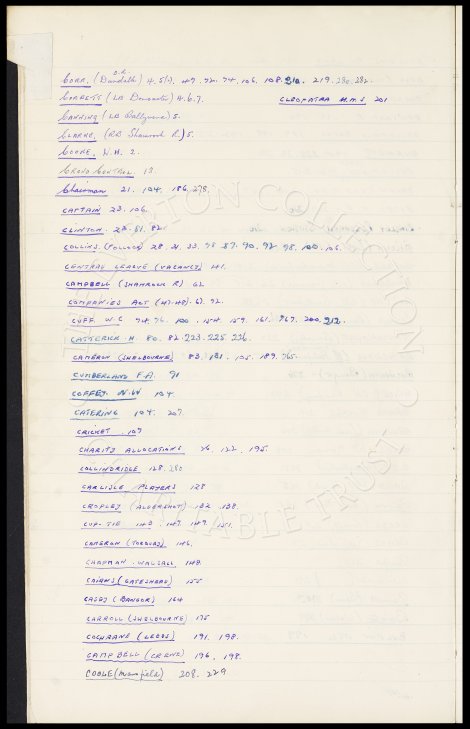 O.R.
CORR. (Dundalk) 4. 5(2). 47. 72. 74. 106. 108. 210. 219. 280. 282.
CORBETT (LB Doncaster) 4. 6. 7. CLEOPATRA H.M.S 201
CANNING (LB Ballymena) 5.
CLARKE. (RB Shamrock R.) 5.
COOKE, W.H. 2.
CROWD CONTROL 13.
Chairman 21. 104. 186. 278.
CAPTAIN 23. 106.
CLINTON. 23. 81. 82.
COLLINS. (POLLOCK) 28. 31. 33. 75. 87. 90. 92. 98. 100. 106.
CENTRAL LEAGUE (VACANCY) 41.
CAMPBELL (SHAMROCK R) 62.
COMPANIES ACT (47-48). 67. 72.
CUFF. W.C. 74. 76. 100. 154. 159. 161. 167. 200. 212.
CATTERICK H. 80. 82. 223. 225. 226.
CAMERON (SHELBOURNE) 83. 101. 105. 189. 265.
CUMBERLAND F.A. 91
COFFEY. W.W. 104
CATERING 104. 207.
CRICKET. 107
CHARITY ALLOCATIONS 26. 122. 195.
COLLINDRIDGE 128. 280
CARLISLE PLAYERS 128
CROPLEY (ALDERSHOT) 132. 138.
CUP-TIE 140. 147. 149. 151.
CAMERON (TORQUAY) 146.
CHAPMAN. WALSALL 148.
CAIRNS (GATESHEAD) 155
CASEY (BANGOR) 164
CARROLL (SHELBOURNE) 175
COCHRANE (LEEDS) 191. 198.
CAMPBELL (CREWE) 196. 198.
COOLE (Mansfield) 208. 229
THE EVERTON COLLECTION
CHARITABLE TRUST